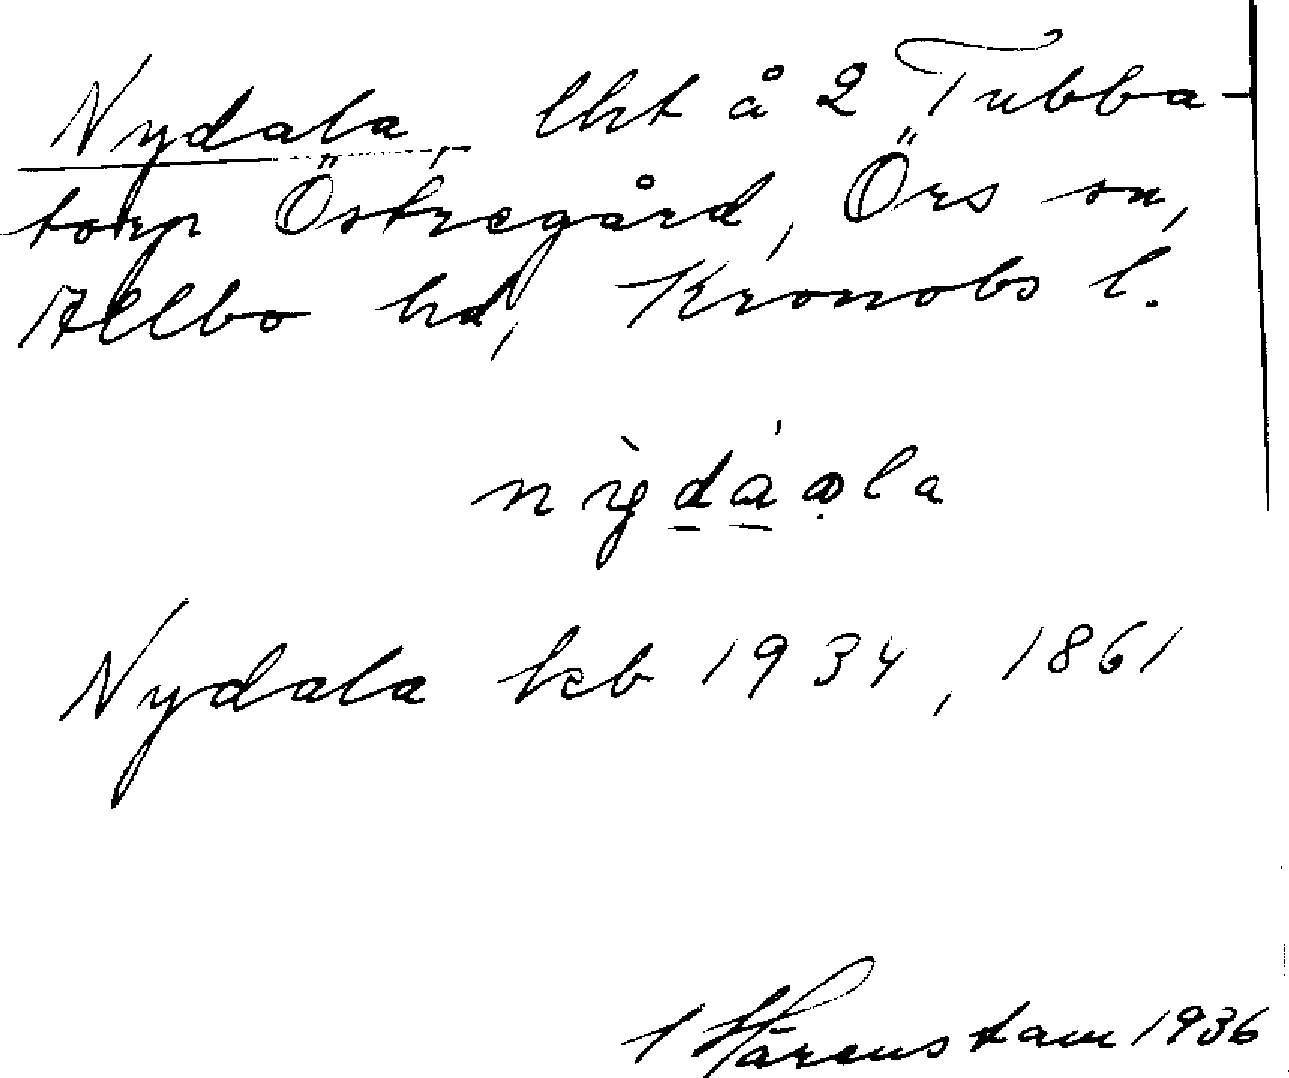 Nydala, lht å 2 Tubba-
torp Östregård, Örs sn,
Allbo hd, Kronobs l.
Nydala kb 1934, 1861
1936